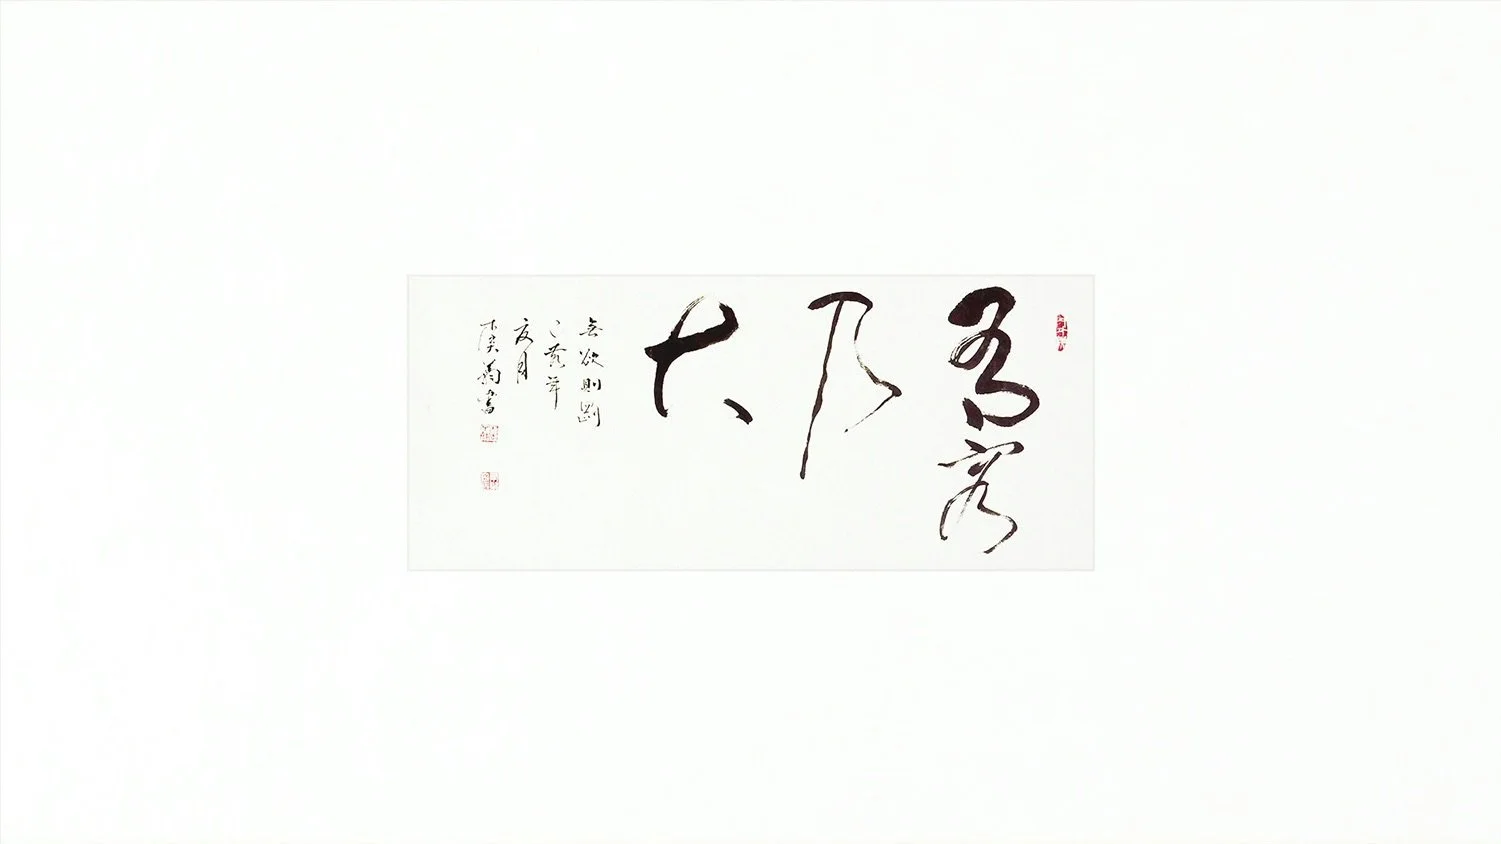 有容
乃
大
無欲則剛
己亥年
夏月
菊書